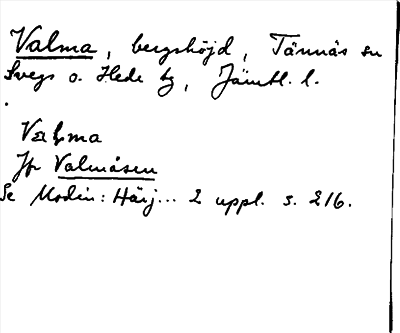 Valma, bergshöjd, Tännäs sn
Svegs o. Hede tg, Jämtl. l.
Valma
Jfr Valmåsen
Se Modin: Härj... 2 uppl. s. 216.